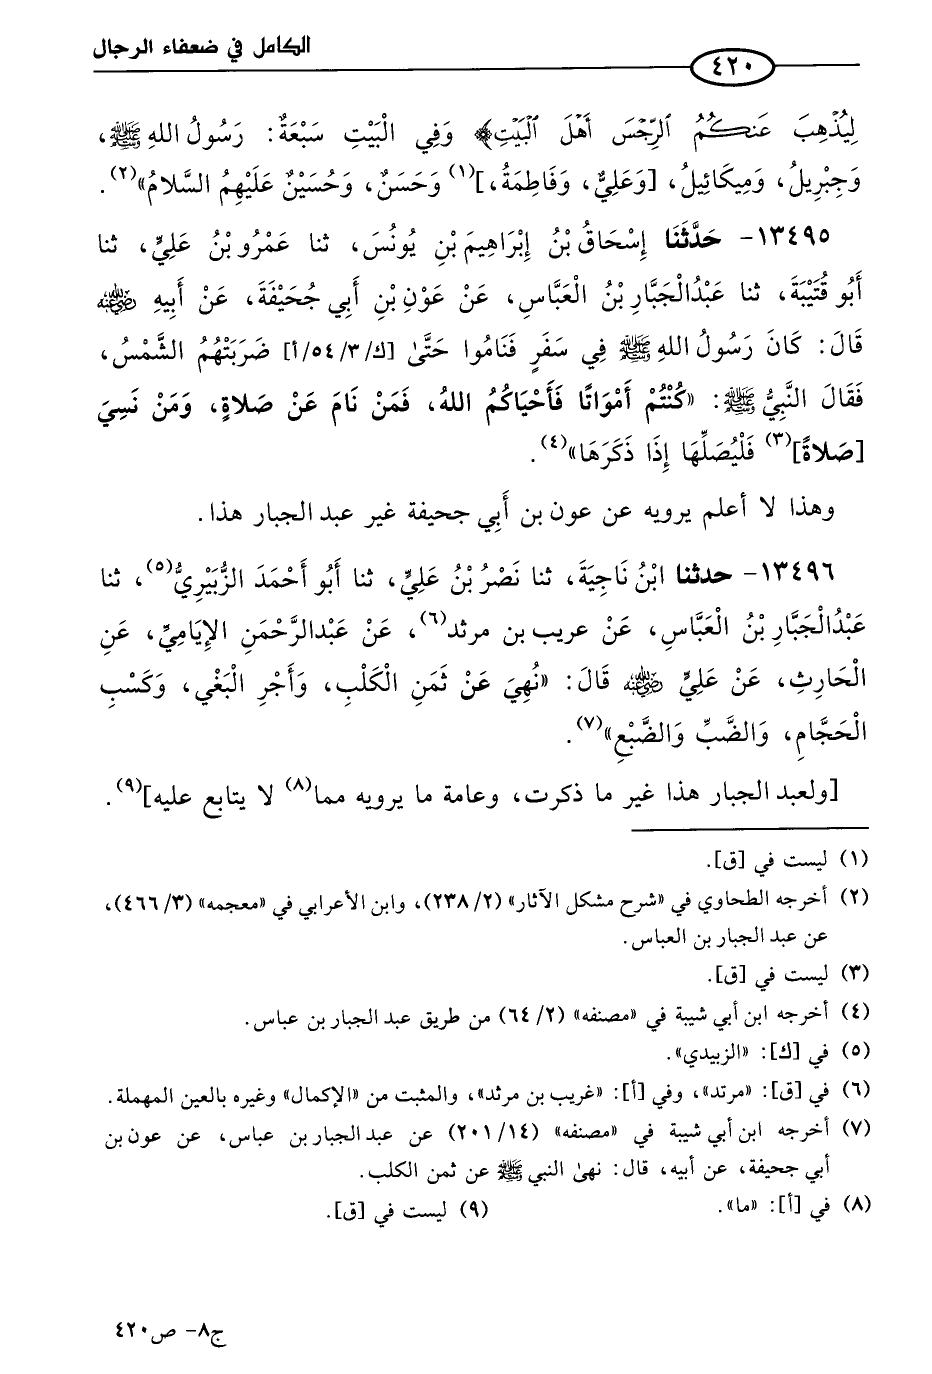 الكامل في ضعفاء الرجال
٤٢٠
لِيُذْهِبَ عَنكُمُ ٱلرِّجْسَ أَهْلَ ٱلْبَيْتِ﴾ وَفِي الْبَيْتِ سَبْعَةٌ: رَسُولُ اللهِ ﷺ،
وَجِبْرِيلُ، وَمِيكَائِيلُ، [وَعَلِيٌّ، وَفَاطِمَةُ،](١) وَحَسَنٌ، وَحُسَيْنٌ عَلَيْهِمُ السَّلَامُ»(٢).
١٣٤٩٥- حَدَّثَنَا إِسْحَاقُ بْنُ إِبْرَاهِيمَ بْنِ يُونُسَ، ثنا عَمْرُو بْنُ عَلِيٍّ، ثنا
أَبُو قُتَيْبَةَ، ثنا عَبْدُالْجَبَّارِ بْنُ الْعَبَّاسِ، عَنْ عَوْنِ بْنِ أَبِي جُحَيْفَةَ، عَنْ أَبِيهِ رضي الله عنه
قَالَ: كَانَ رَسُولُ اللهِ ﷺ فِي سَفَرٍ فَنَامُوا حَتَّىٰ [ك/٣/٥٤/أ] ضَرَبَتْهُمُ الشَّمْسُ،
فَقَالَ النَّبِيُّ ﷺ: «كُنْتُمْ أَمْوَاتًا فَأَحْيَاكُمُ اللهُ، فَمَنْ نَامَ عَنْ صَلاةٍ، وَمَنْ نَسِيَ
[صَلاةً](٣) فَلْيُصَلِّهَا إِذَا ذَكَرَهَا»(٤).
وهذا لا أعلم يرويه عن عون بن أَبِي جحيفة غير عبد الجبار هذا.
١٣٤٩٦- حدثنا ابْنُ نَاجِيَةَ، ثنا نَصْرُ بْنُ عَلِيٍّ، ثنا أَبُو أَحْمَدَ الزُّبَيْرِيُّ(٥)، ثنا
عَبْدُالْجَبَّارِ بْنُ الْعَبَّاسِ، عَنْ عريب بن مرثد(٦)، عَنْ عَبْدالرَّحْمَنِ الإِيَامِيِّ، عَنِ
الْحَارِثِ، عَنْ عَلِيٍّ رضي الله عنه قَالَ: «نُهِيَ عَنْ ثَمَنِ الْكَلْبِ، وَأَجْرِ الْبَغْيِ، وَكَسْبِ
الْحَجَّامِ، وَالضَّبِّ وَالضَّبْعِ»(٧).
[ولعبد الجبار هذا غير ما ذكرت، وعامة ما يرويه مما(٨) لا يتابع عليه](٩).
(١) ليست في [ق].
(٢) أخرجه الطحاوي في «شرح مشكل الآثار» (٢٣٨/٢)، وابن الأعرابي في «معجمه» (٤٦٦/٣)،
عن عبد الجبار بن العباس.
(٣) ليست في [ق].
(٤) أخرجه ابن أبي شيبة في «مصنفه» (٦٤/٢) من طريق عبد الجبار بن عباس.
(٥) في [ك]: «الزبيدي».
(٦) في [ق]: «مرتد»، وفي [أ]: «غريب بن مرثد»، والمثبت من «الإكمال» وغيره بالعين المهملة.
(٧) أخرجه ابن أبي شيبة في «مصنفه» (٢٠١/١٤) عن عبد الجبار بن عباس، عن عون بن
أبي جحيفة، عن أبيه، قال: نهىٰ النبي ﷺ عن ثمن الكلب.
(٨) في [أ]: «ما». (٩) ليست في [ق].
ج٨- ص٤٢٠